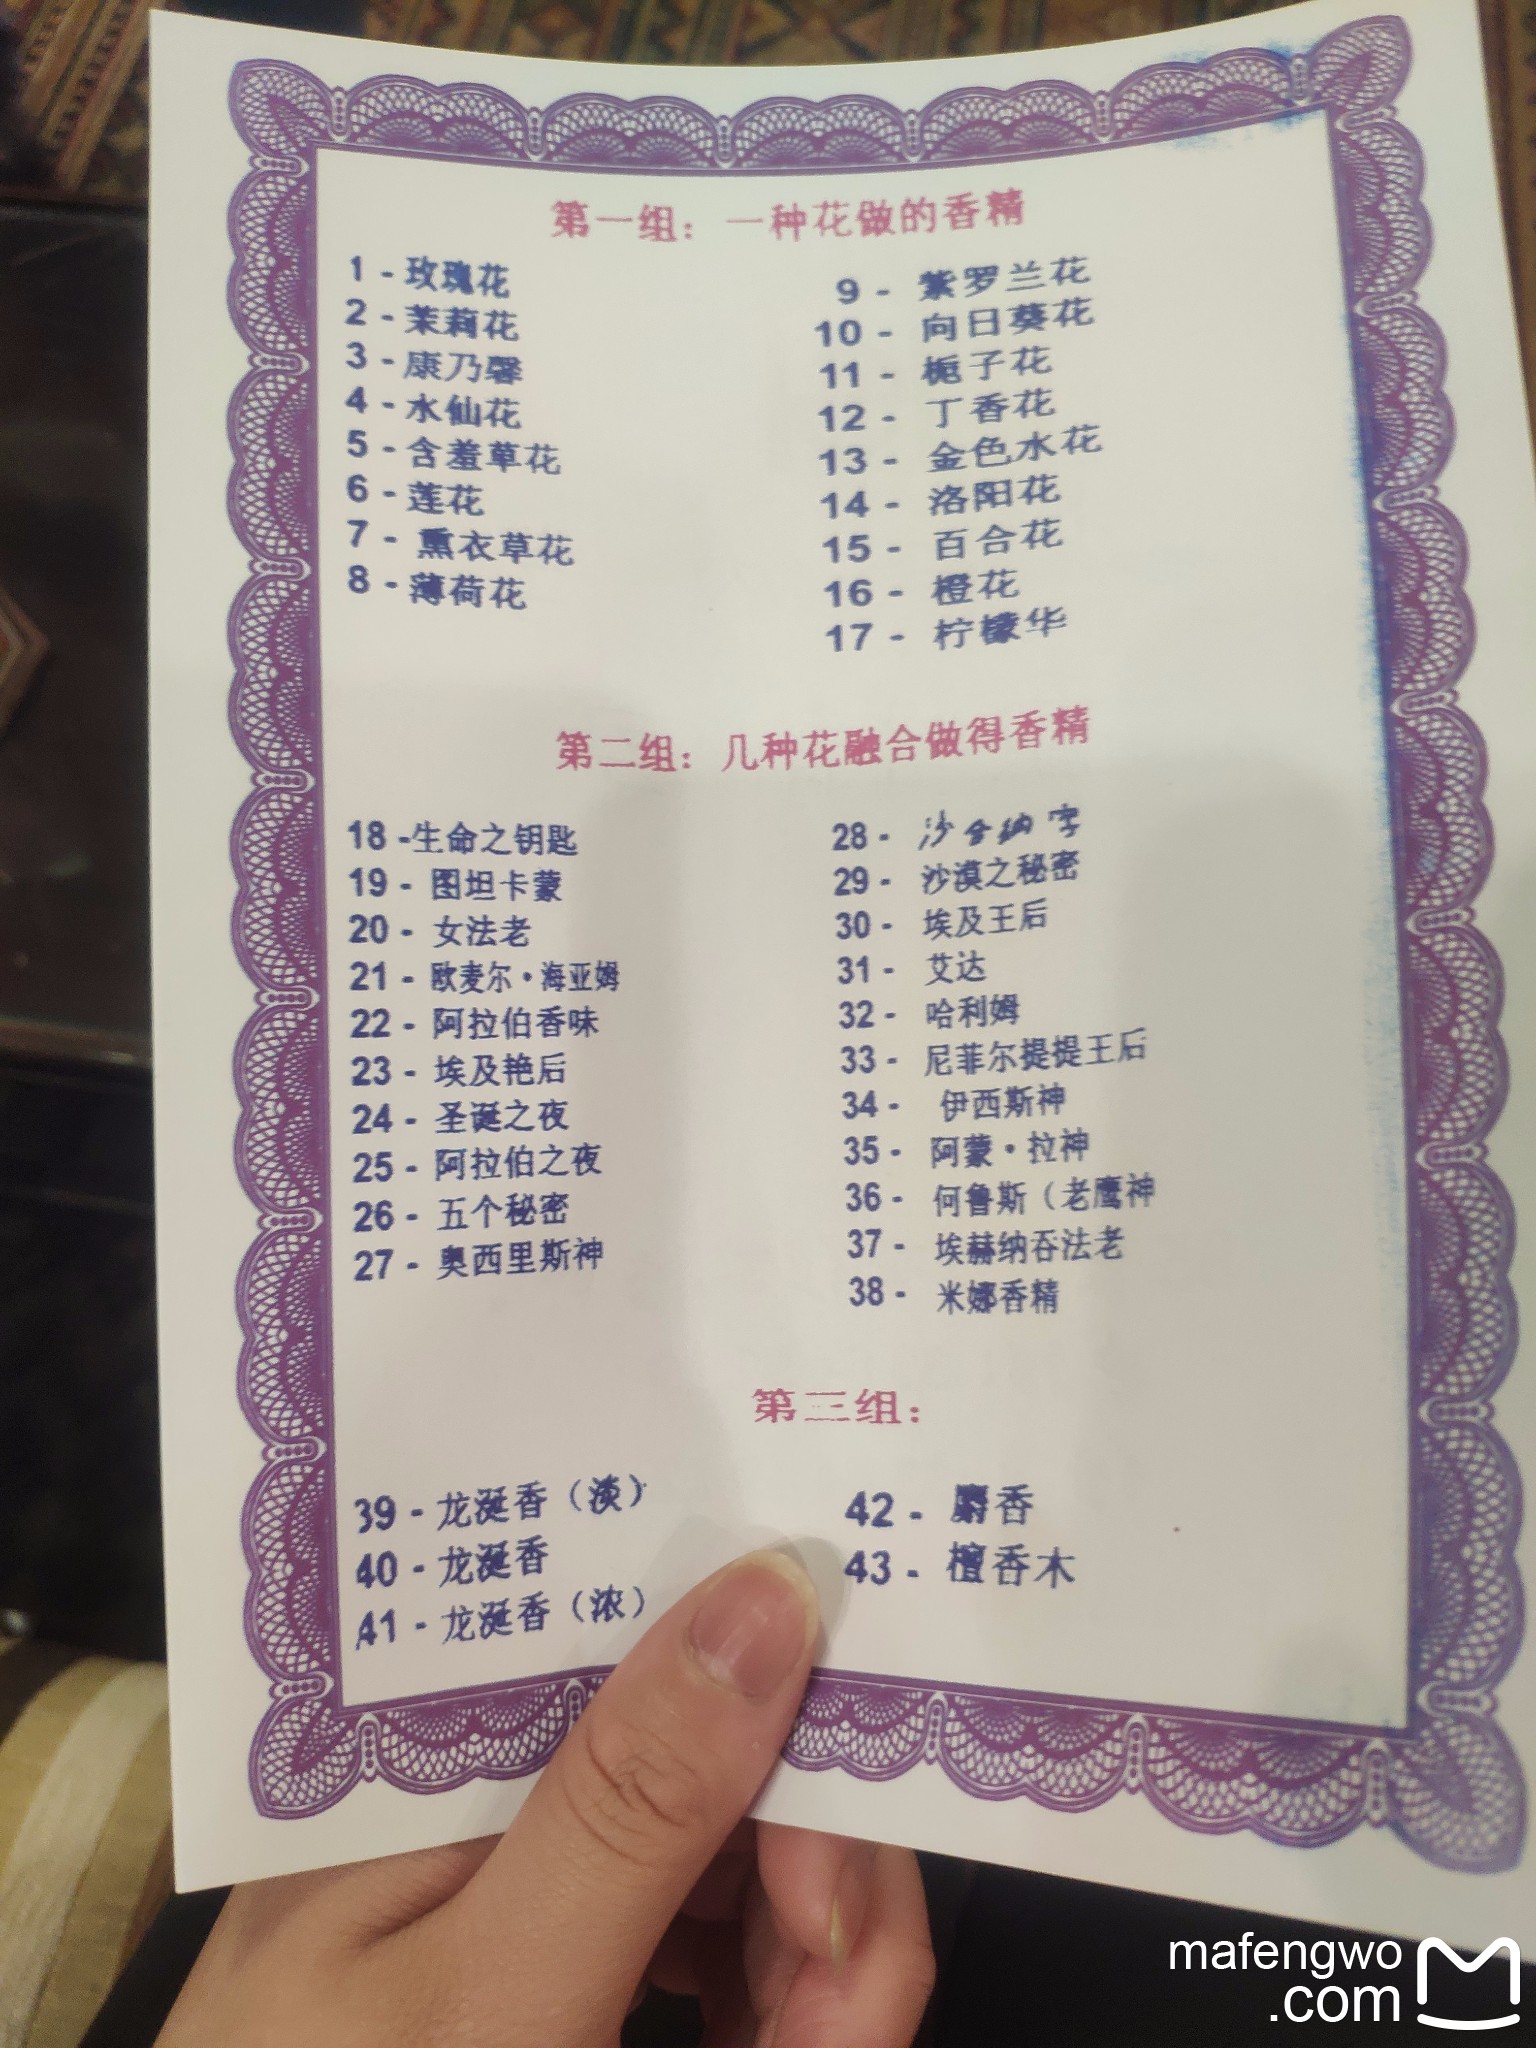 第一组：一种花做的香精
1 - 玫瑰花
2 - 茉莉花
3 - 康乃馨
4 - 水仙花
5 - 含羞草花
6 - 莲花
7 - 熏衣草花
8 - 薄荷花
9 - 紫罗兰花
10 - 向日葵花
11 - 栀子花
12 - 丁香花
13 - 金色水花
14 - 洛阳花
15 - 百合花
16 - 橙花
17 - 柠檬华
第二组：几种花融合做得香精
18 -生命之钥匙
19 - 图坦卡蒙
20 - 女法老
21 - 欧麦尔·海亚姆
22 - 阿拉伯香味
23 - 埃及艳后
24 - 圣诞之夜
25 - 阿拉伯之夜
26 - 五个秘密
27 - 奥西里斯神
28 -
29 - 沙漠之秘密
30 - 埃及王后
31 - 艾达
32 - 哈利姆
33 - 尼菲尔提提王后
34 - 伊西斯神
35 - 阿蒙·拉神
36 - 何鲁斯（老鹰神
37 - 埃赫纳吞法老
38 - 米娜香精
第三组：
39 - 龙涎香（淡）
40 - 龙涎香
41 - 龙涎香（浓）
42 - 麝香
43 - 檀香木
mafengwo
.com